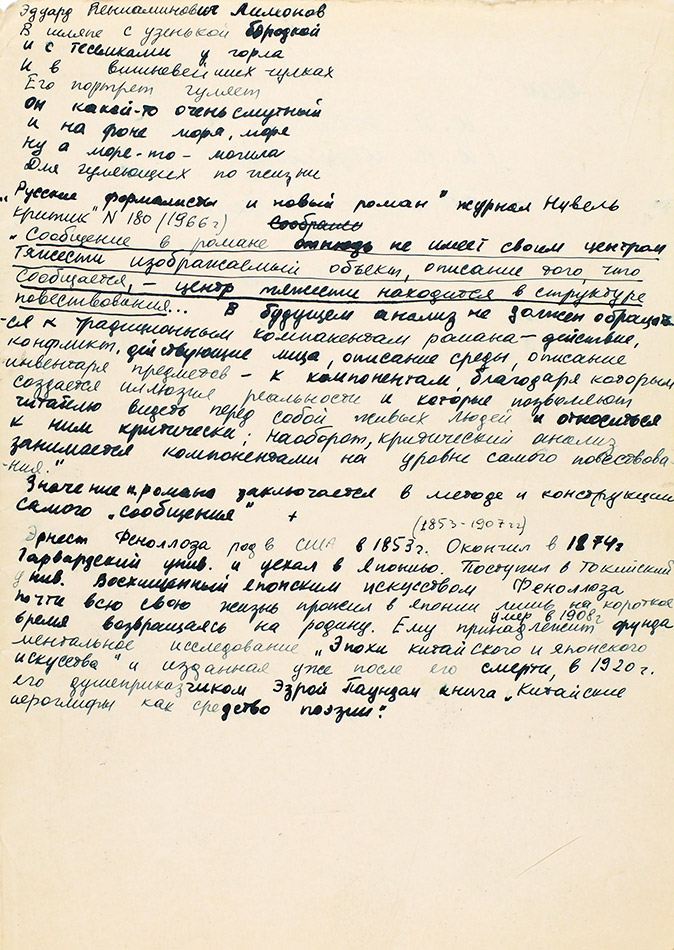 Эдуард Вениаминович Лимонов
В шляпе с узенькой бородкой
и с тесемками у горла
И в вишневейших чулках
Его портрет гуляет
он какой-то очень смутный
и на фоне моря, море
ну а море-то - могила
Для гуляющих по жизни
„Русские формалисты и новый роман" журнал Нувель
критик" N 180 (1966г) Сообщаес
„Сообщение в романе отнюдь не имеет своим центром
Тяжести изображаемый объект, описание того что
сообщается, - центр тяжести находится в структуре
повествования... В будущем анализ не должен обращать-
-ся к традиционным компанентам романа - действие,
конфликт, действующие лица, описание среды, описание
инвентаря предметов - к компонентам, благодаря которым
создается иллюзия реальности и которые позволяют
читателю видеть перед собой живых людей и относиться
к ним критически; наоборот, критический анализ
занимается компонентами на уровне самого повествова-
-ния."
Значение романа заключается в методе и конструкции
самого „сообщения" +
(1853-1907гг)
Эрнест Феноллоза род в США в 1853г. Окончил в 1874г
Гарвардский унив. и уехал в Японию. Поступил в Токийский
унив. Восхищенный японским искусством Феноллоза
почти всю свою жизнь прожил в Японии лишь на короткое
умер в 1908г
время возвращаясь на родину. Ему принадлежит фунда
ментальное исследование „Эпохи китайского и японского
искусства" и изданная уже после его смерти, в 1920г.
его душеприказчиком Эзрой Паундом книга „Китайские
иероглифы как средство поэзии".